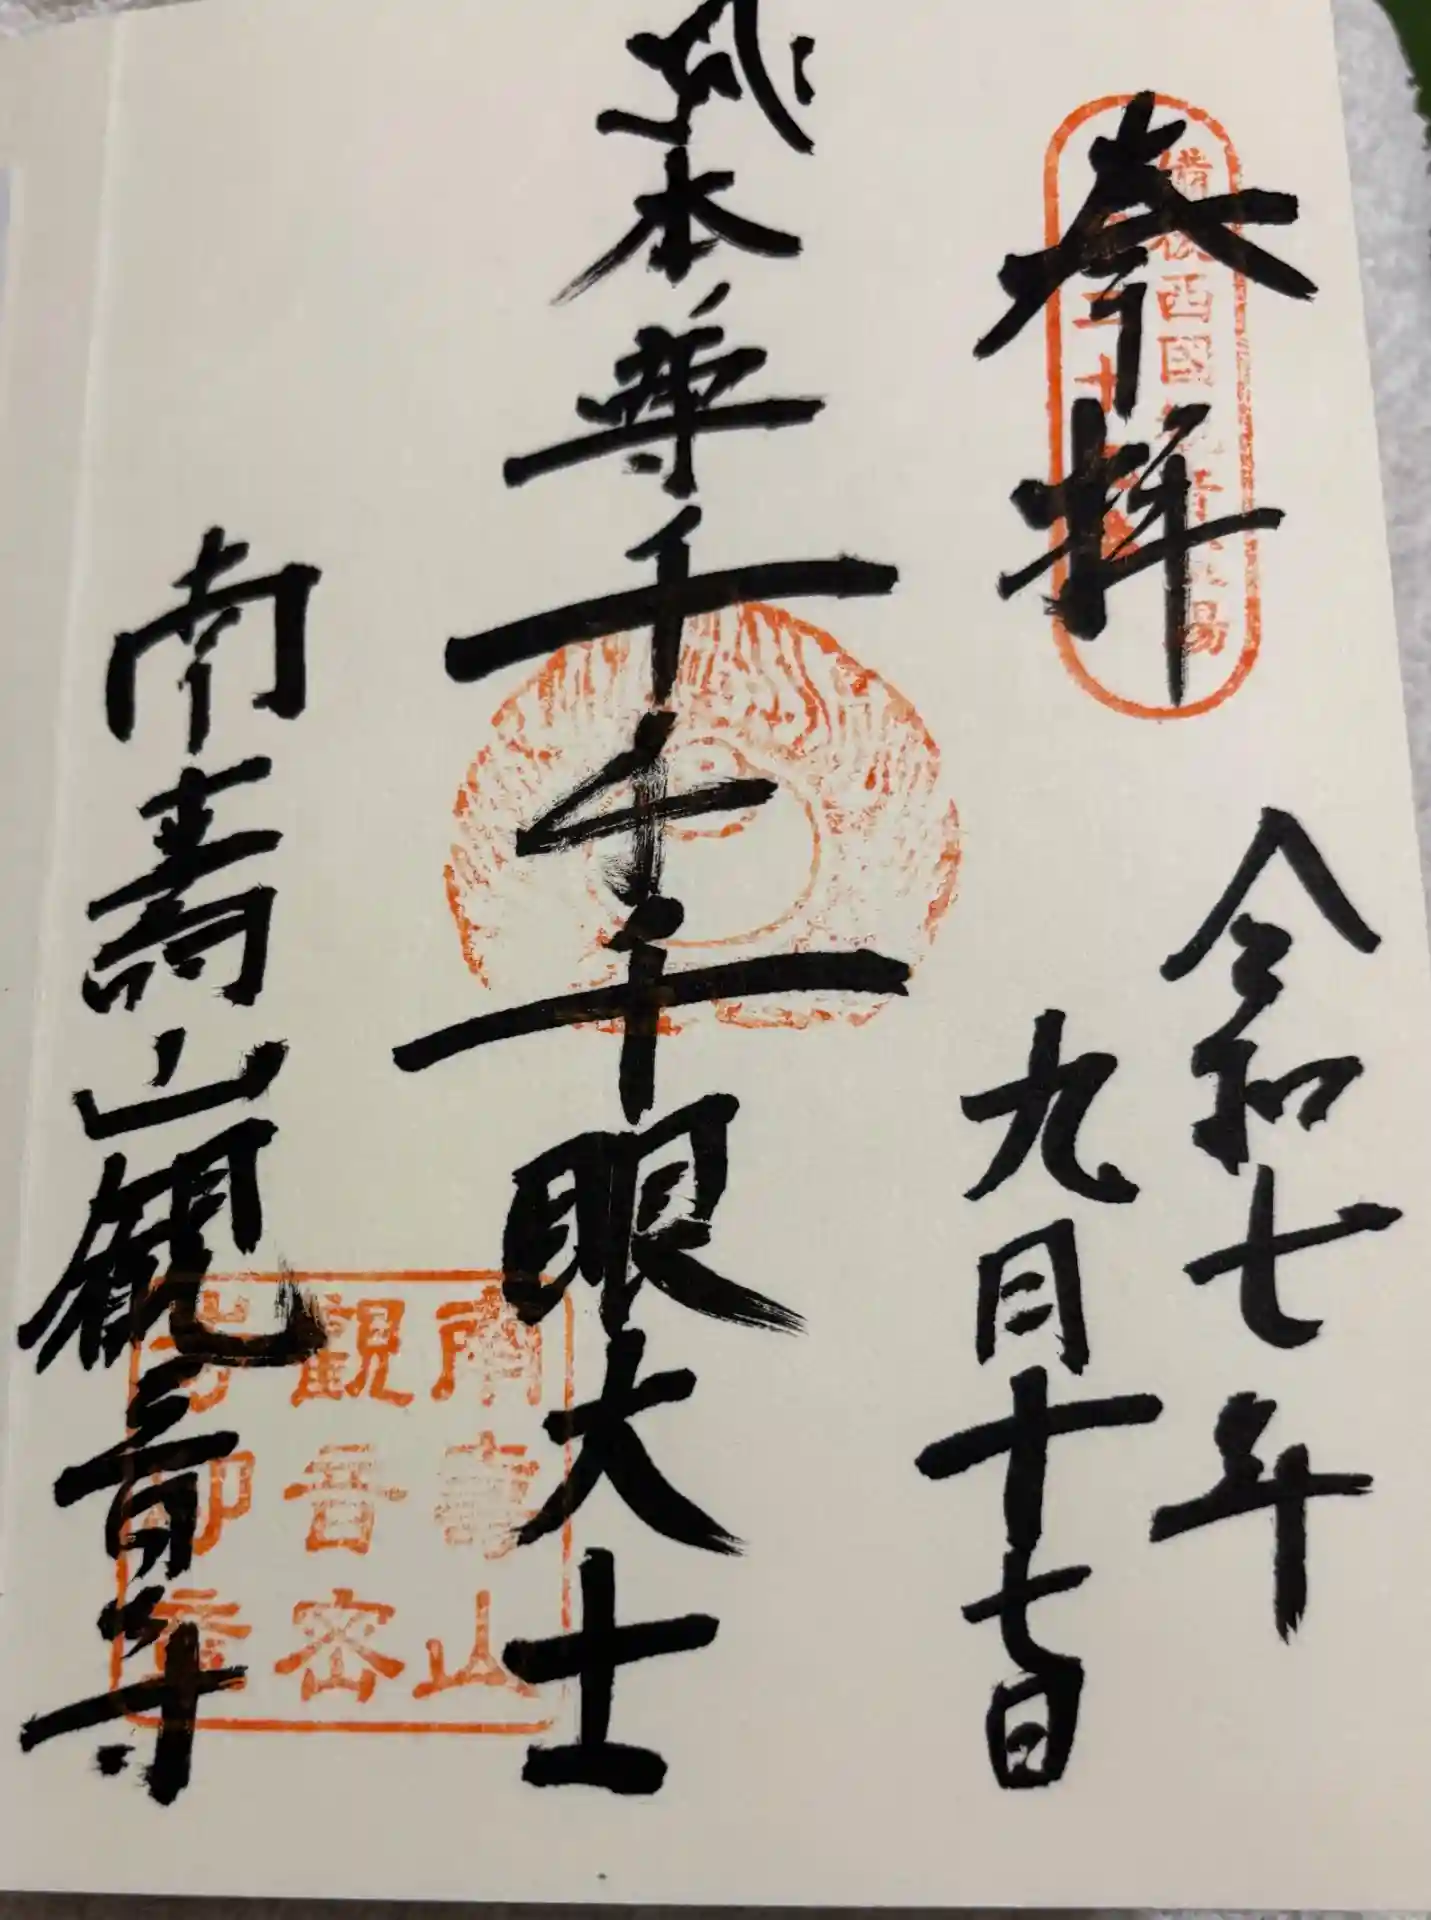 奉拝
備後西國観音霊場
令和七年
九月十七日
本尊千手千眼大士
南壽山観音寺
南壽山
観音密
寺印